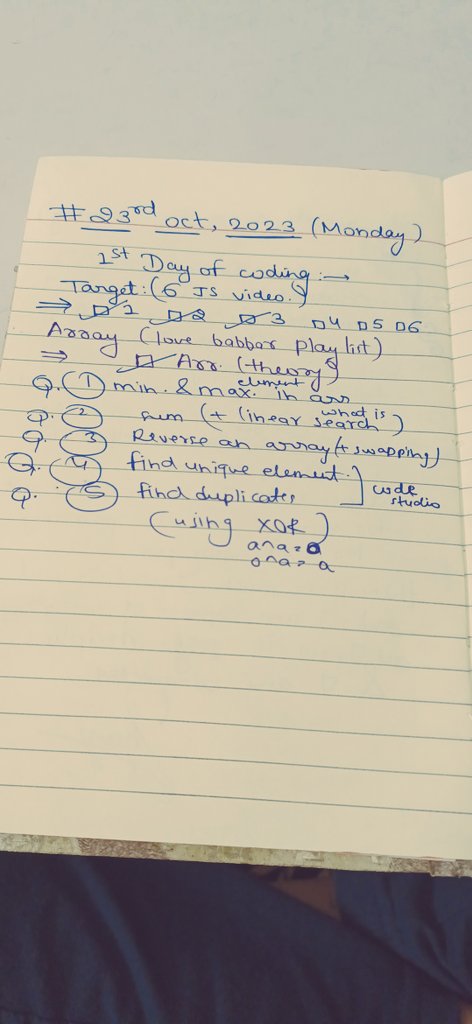 # 23rd Oct, 2023 (Monday)
1st Day of coding :→
Target: (6 JS video.)
⇒ ☑1 ☑2 ☑3 □4 □5 □6
Array (love babbar playlist)
⇒ ☑ Arr. (theory)
Q. ① min. & max. element in arr
Q. ② sum (+ what is linear search)
Q. ③ Reverse an array (+ swapping)
Q. ④ find unique element.
Q. ⑤ find duplicates
] code studio
(using XOR)
a^a=0
0^a=a